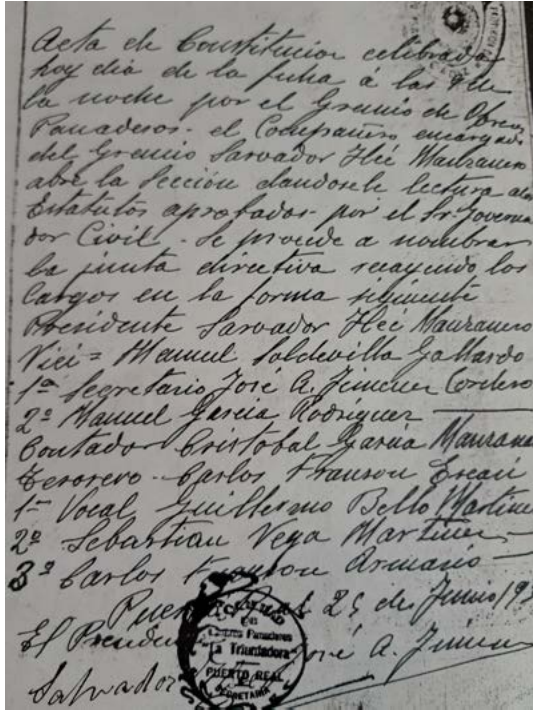 Acta de Constitucion celebrada
hoy dia de la fecha á las
la noche por el Gremio de Obreros
Panaderos - el Compañero encargado
del Gremio Sarvador Hée Manzanero
abre la Sección dandosele lectura a los
Estatutos aprobados por el Sr. Joverna
dor Civil - Se procede a nombrar
la junta directiva recayendo los
Cargos en la forma siguiente
Presidente Sarvador Hée Manzanero
Vici = Manuel Soldevilla Gallardo
1º Segretario José A. Jimenez Cordero
2º Manuel Garcia Rodriguez
Contador Cristobal Garcia Manzana
Tesorero - Carlos
1º Vocal Guillermo Bello Martine
2º Sebastian Vega Martinez
3º Carlos Armario
25 de Junio
El José A. Jimen
Salvador
Panaderos
"La Triunfadora"
PUERTO REAL
SECRETARIA